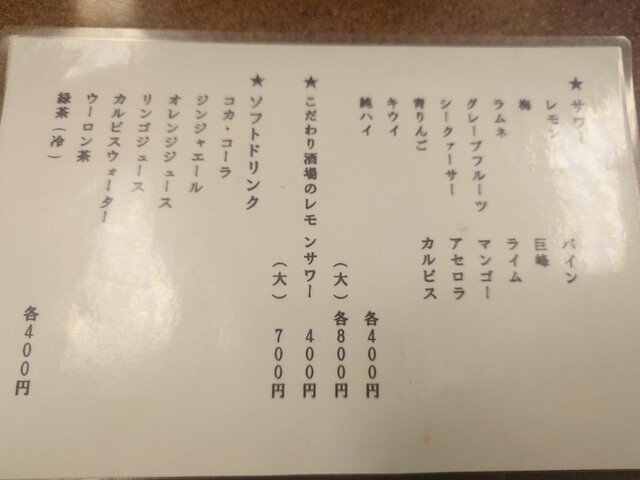 ★ サワー
レモン パイン
梅 巨峰
ラムネ ライム
グレープフルーツ マンゴー
シークァーサー アセロラ
青りんご カルピス
キウイ
純ハイ 各400円
(大) 各800円
★ こだわり酒場のレモンサワー 400円
(大) 700円
★ ソフトドリンク
コカ・コーラ
ジンジャエール
オレンジジュース
リンゴジュース
カルピスウォーター
ウーロン茶
緑茶(冷)
各400円